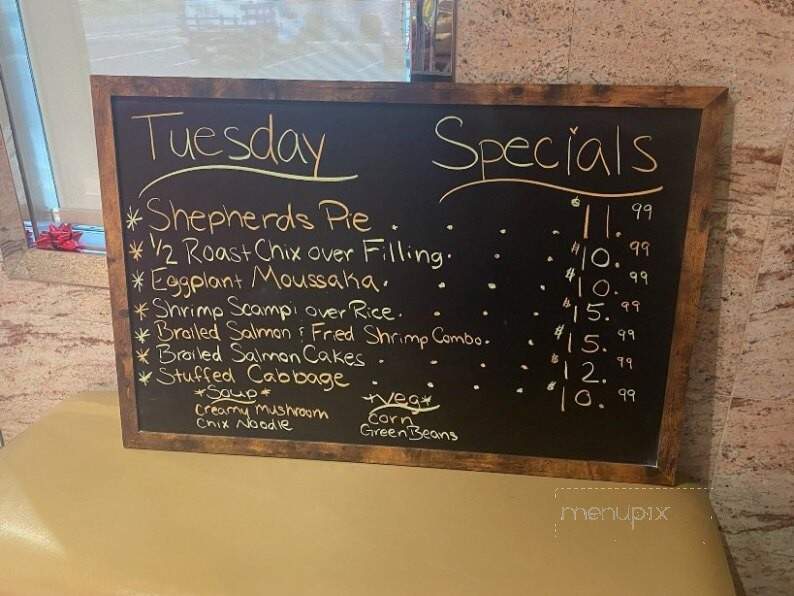 Tuesday Specials
* Shepherds Pie . . . . $11.99
* 1/2 Roast Chix over Filling. . . . $10.99
* Eggplant Moussaka. . . . $10.99
* Shrimp Scampi over Rice. . . . $15.99
* Broiled Salmon & Fried Shrimp Combo. . . $15.99
* Broiled Salmon Cakes . . . . $12.99
* Stuffed Cabbage . . . . $10.99
*Soup* *Veg*
Creamy Mushroom Corn
Chix Noodle Green Beans
menupix